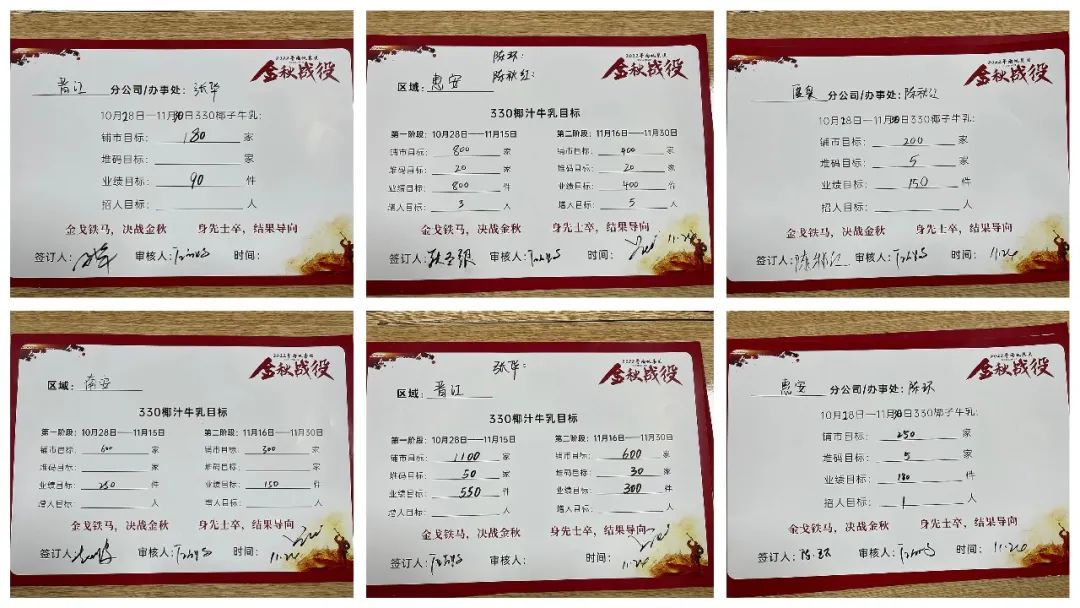 金秋战役
晋江 分公司/办事处: 张华
10月28日—11月30日330椰子牛乳:
铺市目标: 180 家
堆码目标: 家
业绩目标: 90 件
招人目标: 人
金戈铁马, 决战金秋 身先士卒, 结果导向
签订人: 审核人: 时间:
陈环:
陈秋红:
金秋战役
区域: 惠安
330椰汁牛乳目标
第一阶段: 10月28日——11月15日 第二阶段: 11月16日——11月30日
铺市目标: 800 家 铺市目标: 400 家
堆码目标: 20 家 堆码目标: 20 家
业绩目标: 800 件 业绩目标: 400 件
增人目标: 3 人 增人目标: 5 人
金戈铁马, 决战金秋 身先士卒, 结果导向
签订人: 审核人: 时间: 11.24
金秋战役
分公司/办事处: 陈秋红
10月28日—11月30日330椰子牛乳:
铺市目标: 200 家
堆码目标: 5 家
业绩目标: 150 件
招人目标: 人
金戈铁马, 决战金秋 身先士卒, 结果导向
签订人: 陈秋红 审核人: 时间: 11.24
金秋战役
区域: 南安
330椰汁牛乳目标
第一阶段: 10月28日——11月15日 第二阶段: 11月16日——11月30日
铺市目标: 600 家 铺市目标: 300 家
堆码目标: 家 堆码目标: 家
业绩目标: 250 件 业绩目标: 150 件
增人目标: 人 增人目标: 人
金戈铁马, 决战金秋 身先士卒, 结果导向
签订人: 审核人: 时间: 11.24
张华:
金秋战役
区域: 晋江
330椰汁牛乳目标
第一阶段: 10月28日——11月15日 第二阶段: 11月16日——11月30日
铺市目标: 1100 家 铺市目标: 600 家
堆码目标: 50 家 堆码目标: 30 家
业绩目标: 550 件 业绩目标: 300 件
增人目标: 人 增人目标: 人
金戈铁马, 决战金秋 身先士卒, 结果导向
签订人: 审核人: 时间: 11.24
金秋战役
惠安 分公司/办事处: 陈环
10月28日—11月30日330椰子牛乳:
铺市目标: 250 家
堆码目标: 5 家
业绩目标: 180 件
招人目标: 1 人
金戈铁马, 决战金秋 身先士卒, 结果导向
签订人: 陈环 审核人: 时间: 11.24